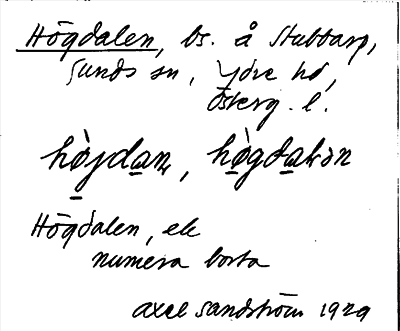 Högdalen, bs. å Stubbarp,
Sunds sn, Ydre hd,
Österg. l.
högdalen, ek
numera borta
Axel Sandström 1929